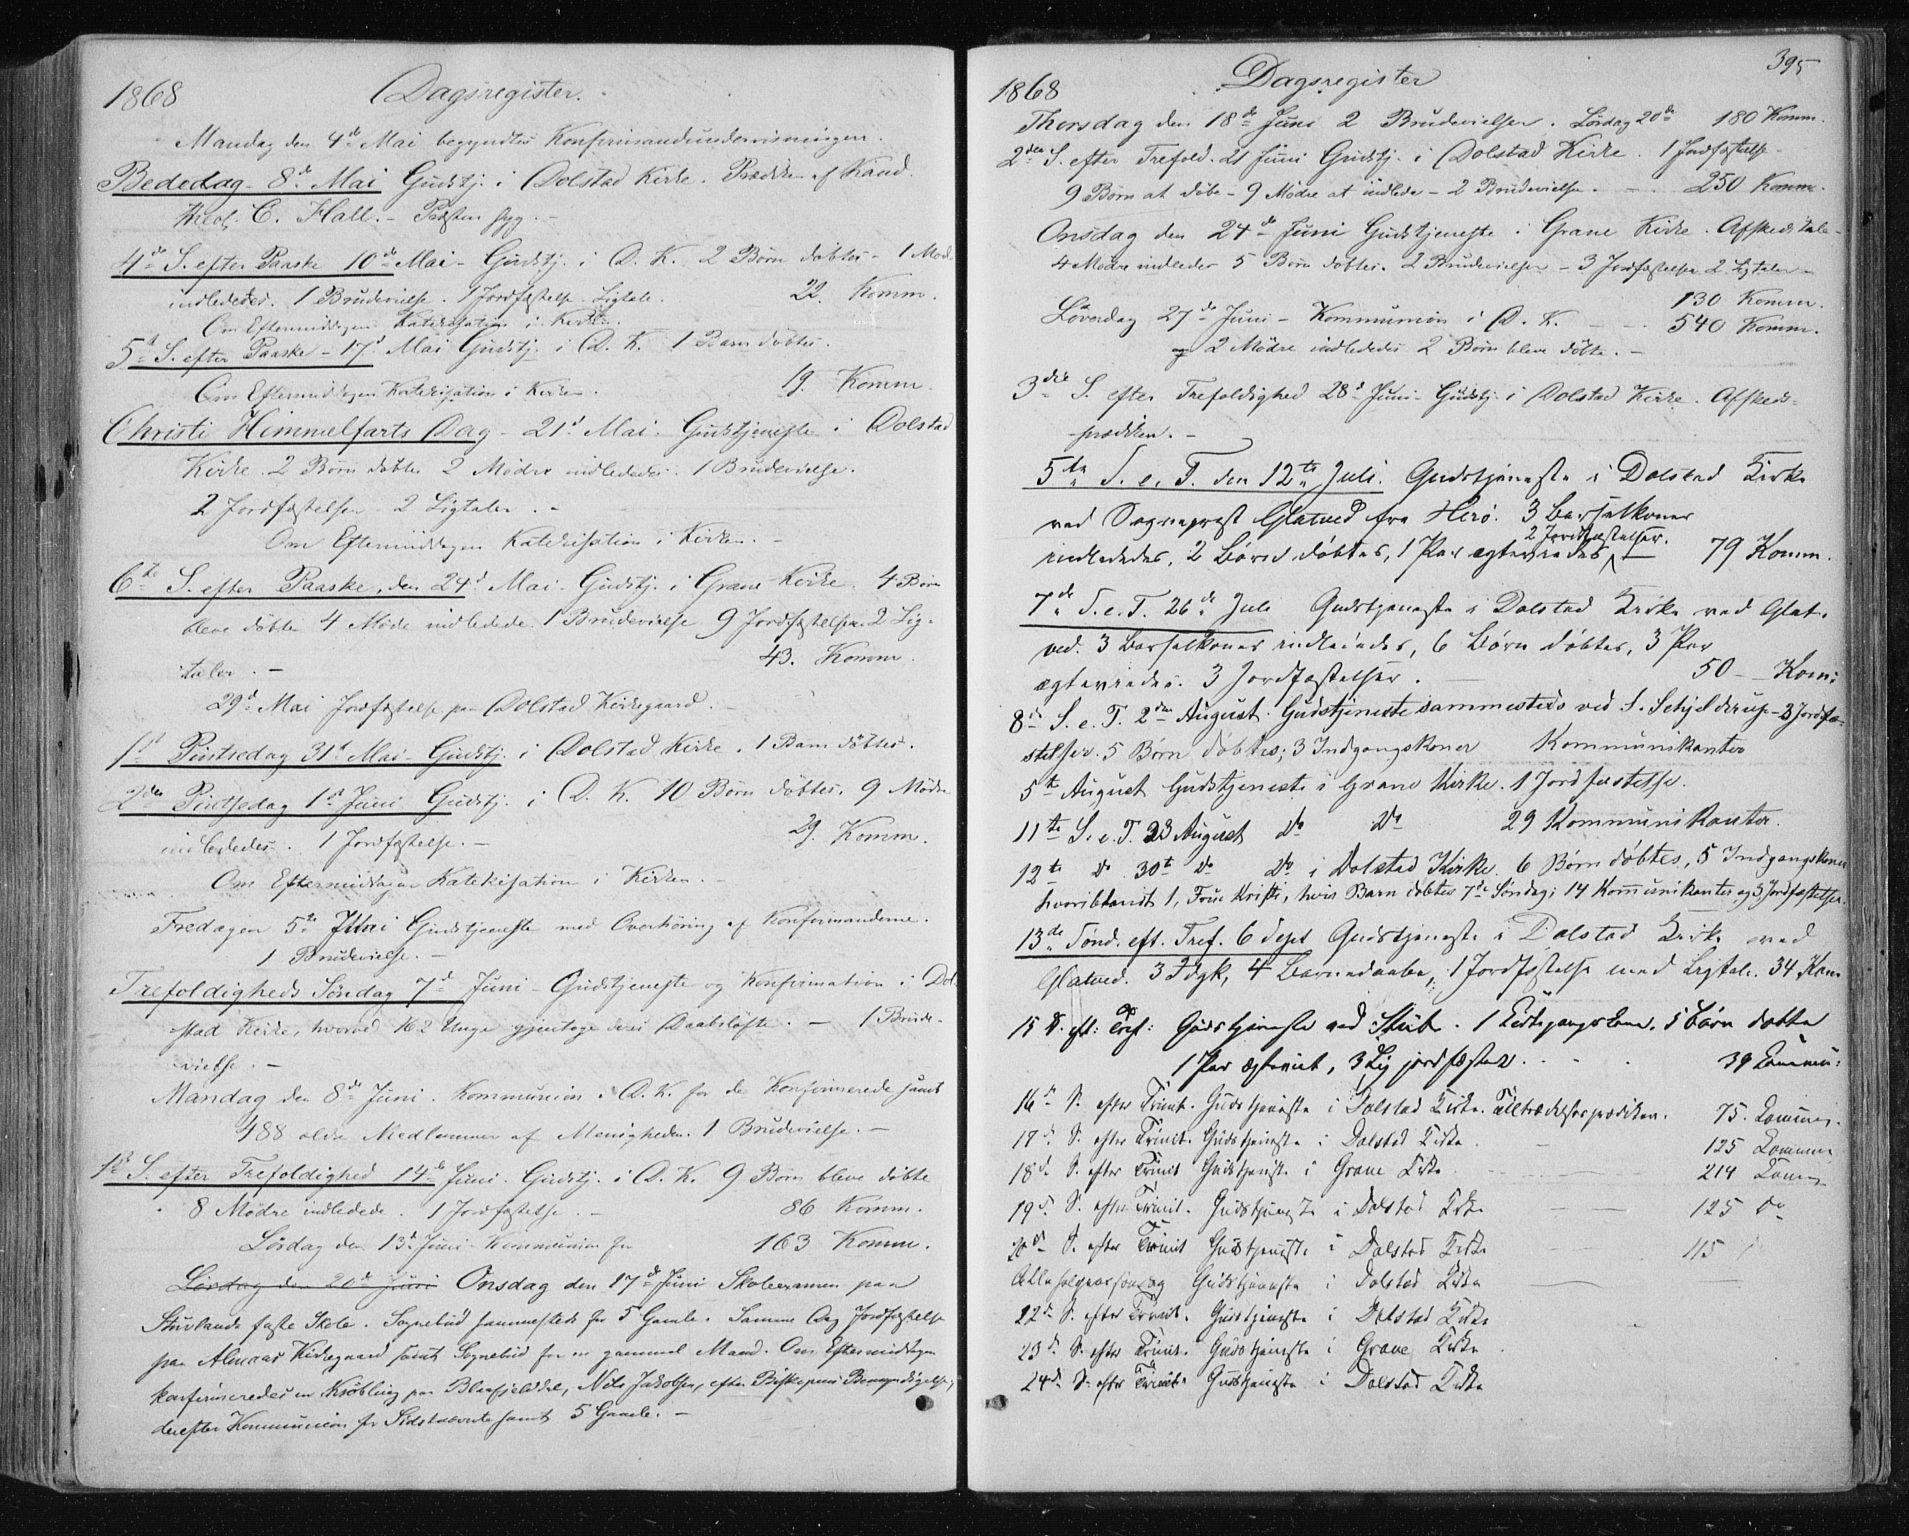 1868 Dagsregister.
Mandag den 4de Mai begyndtes Konfirmandundervisningen.
Bededag - 8de Mai Gudstj. i Dolstad Kirke. Prædiken af Kand.
theol. C. Hall. - Præsten syg. -
4de S. efter Paaske 10de Mai - Gudstj. i D. K. 2 Børn døbtes - 1 Mod.
indlededes. 1 Brudevielse. 1 Jordfæstelse. Ligtale. 22. Komm.
Om Eftermiddagen Katekisation i Kirken.
5te S. efter Paaske - 17d Mai Gudstj. i D. K. 1 Barn døbtes.
Om Eftermiddagen Katekisation i Kirken. 19. Komm.
Christi Himmelfarts Dag - 21d Mai. Gudstjeneste i Dolstad
Kirke. 2 Børn døbtes 2 Mødre indlededes. 1 Brudevielse.
2 Jordfæstelser - 2 Ligtaler. -
Om Eftermiddagen Katekisation i Kirken. -
6te S. efter Paaske, den 24d Mai. Gudstj. i Grane Kirke. 4 Børn
bleve døbte 4 Mødre indledede. 1 Brudevielse 9 Jordfæstelser 2 Lig-
taler. - 43. Komm.
29d Mai Jordfæstelse paa Dolstad Kirkegaard. -
1st Pintsedag 31d Mai - Gudstj. i Dolstad Kirke. 1 Barn døbtes.
2den Pintsedag 1st Juni Gudstj. i D. K. 10 Børn døbtes. 9 Mødre
indlededes. 1 Jordfæstelse. - 29. Komm.
Om Eftermiddagen Katekisation i Kirken. -
Fredagen 5te Juni Gudstjeneste med Overhøring af Konfirmanderne.
1 Brudevielse. -
Trefoldigheds Søndag 7d Juni - Gudstjeneste og Konfirmation i Dol-
stad Kirke, hvorved 162 Unge gjentoge deres Daabsløfte. - 1 Brude-
vielse. -
Mandag den 8de Juni. Kommunion i D. K. for de Konfirmerede samt
488 ældre Medlemmer af Menigheden. 1 Brudevielse. -
1st S. efter Trefoldighed 14de Juni. Gudstj. i D. K. 9 Børn bleve døbte
8 Mødre indledede. 1 Jordfæstelse. - 86 Komm.
Lørdag den 13d Juni - Kommunion for 163 Komm.
Lørdag den 20de Juni Onsdag den 17de Juni Skoleexamen paa
Stuvlands faste Skole. Sognebud sammesteds for 5 Gamle. Samme Dag Jordfæstelse
paa Almaas Kirkegaard samt Sognebud for en gammel Mand. Om Eftermiddagen
konfirmeredes en Krøbling paa Blaafjelddal, Nils Jakobsen, efter Biskopens Bemyndigelse,
derefter Kommunion for Sidstnævnte samt 5 Gamle. -
395
1868 Dagsregister
Thorsdag den 18de Juni 2 Brudevielser. Lørdag 20de 180 Komm.
2den S. efter Trefold. 21 Juni Gudstj. i Dolstad Kirke. 1 Jordfæstelse -
9 Børn at døbe - 9 Mødre at indlede - 2 Brudevielse. - 250 Komm.
Onsdag den 24de Juni Gudstjeneste i Grane Kirke. Afskedstale -
4 Mødre indledes 5 Børn døbtes. 2 Brudevielser - 3 Jordfæstelser 2 Ligtaler -
130 Komm.
Løverdag 27de Juni - Kommunion i D. K. - - 540 Komm.
og 2 Mødre indlededes 2 Børn bleve døbte. -
3die S. efter Trefoldighed 28d Juni - Gudstj. i Dolstad Kirke. Afskeds-
prædiken. -
5te S. e. T. den 12te Juli. Gudstjeneste i Dolstad Kirke
ved Sognepræst Glatved fra Herø. 3 Barselkoner
2 Jordfæstelser.
indlededes, 2 Børn døbtes, 1 Par ægteviedes, - 79 Komm.
7de S. e. T. 26de Juli Gudstjeneste i Dolstad Kirke ved Glat-
ved. 3 Barselkoner indlededes, 6 Børn døbtes, 3 Par
ægteviedes. 3 Jordfæstelser. 50 - Kom:
8de S. e. T. 2den August. Gudstjeneste sammesteds ved S. Schjelderup - 3 Jordfæ-
stelser. 5 Børn døbtes; 3 Indgangskoner Kommunikanter
5te August Gudstjeneste i Grane Kirke. 1 Jordfæstelse.
11te S. e. T. 23 August do do 29 Kommunikanter.
12te do 30te do do i Dolstad Kirke. 6 Børn døbtes, 5 Indgangskoner
hvoriblandt 1, Frue Krist, hvis Barn døbtes 7de Søndag; 14 Kommunikanter og 3 Jordfæstelser.
13de Sønd. eft. Tref. 6 Sept Gudstjeneste i Dolstad Kirke ved
Glatved. 3 Idgk, 4 Barnedaabe, 1 Jordfæstelse med Ligtale. 34 Kom
15 S. eft: Tref: Gudstjeneste ved Stub. 1 Kirkegangskone. 5 Børn døbte
1 Par ægteviet, 3 Lig jordfæstede. 39 Kommu:
16de S. efter Trinit. Gudstjeneste i Dolstad Kirke. Tiltrædelsesprædiken. 75. Kommu.
17d. S. efter Trinit. Gudstjeneste i Dolstad Kirke. - 125 Kommu
18d. S. efter Trinit Gudstjeneste i Grane Kirke 214 Komm
19d. S. efter Trinit. Gudstjeneste i Dolstad Kirke - - 125 do
20de S. efter Trinit Gudstjeneste i Dolstad Kirke - - 115
Allehelgensøndag Gudstjeneste i Dolstad Kirke
22de S. efter Trinit. Gudstjeneste i Dolstad Kirke
23d S. efter Trinit. Gudstjeneste i Grane Kirke
24de S. efter Trinit. Gudstjeneste i Dolstad Kirke